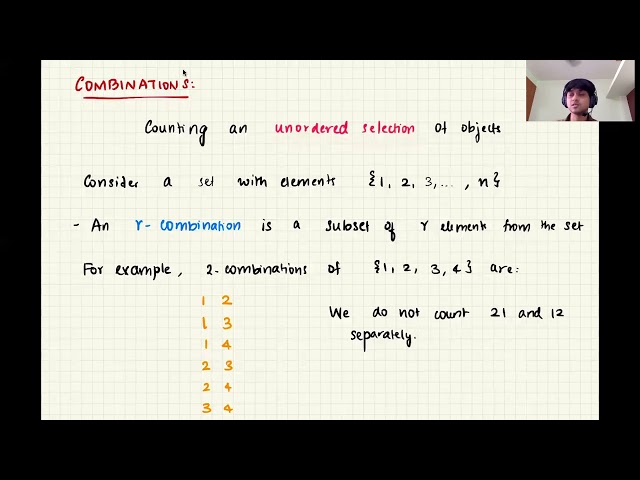 COMBINATIONS:
Counting an unordered selection of objects
Consider a set with elements {1, 2, 3,... , n}
- An r-combination is a subset of r elements from the set
For example, 2-combinations of {1, 2, 3, 4} are:
1 2
1 3
1 4
2 3
2 4
3 4
We do not count 21 and 12
separately.